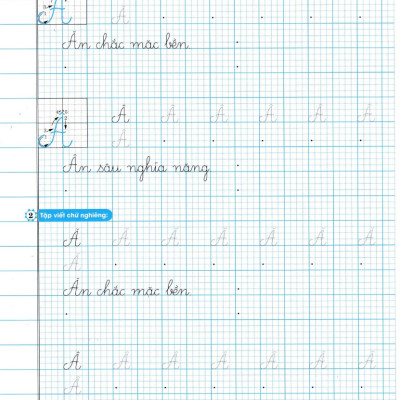 Ă Ă
Ăn chắc mặc bền
Â Â Â Â Â Â Â
Â
Ân sâu nghĩa nặng
2 Tập viết chữ nghiêng:
Ă Ă Ă Ă Ă Ă Ă
Ă
Ăn chắc mặc bền
Â Â Â Â Â Â Â
Â